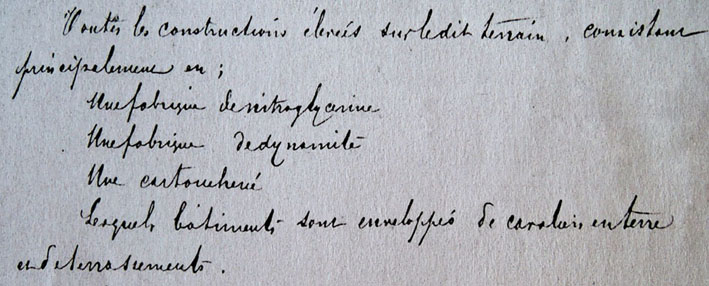 Toutes les constructions élevées sur ledit terrain, consistant
principalement en ;
Une fabrique de nitroglycerine
Une fabrique de dynamite
Une cartoucherie
Lesquels bâtiments sont enveloppés de cavaliers en terre
et de terrassements.